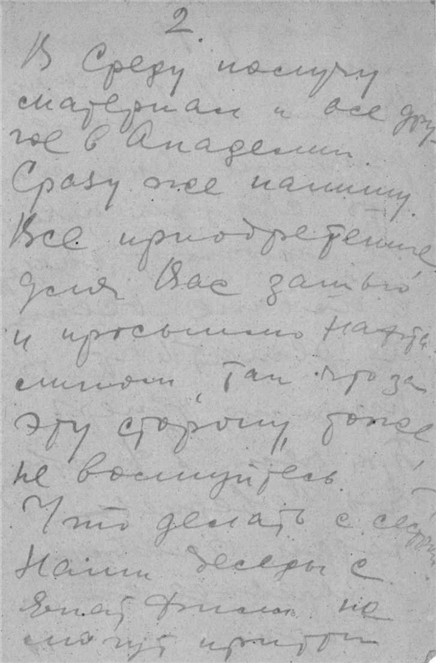 2.
В Среду получу
материал и все дру-
гое в Академии.
Сразу же напишу.
Все приобретенное
для Вас зашью
и просьшлю
так что за
эту сторону, тоже
не волнуйтесь.
Что делать с
Наши беседы с
не
могут